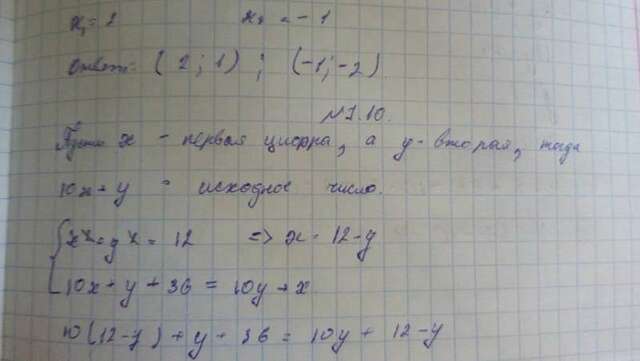 x₁ = 2 x₂ = -1
Ответ: (2; 1); (-1; -2)
№ 7.10.
Пусть x - первая цифра, а y - вторая, тогда
10x + y - исходное число.
= 12 => x = 12-y
10x + y + 36 = 10y + x
10(12-y) + y + 36 = 10y + 12-y